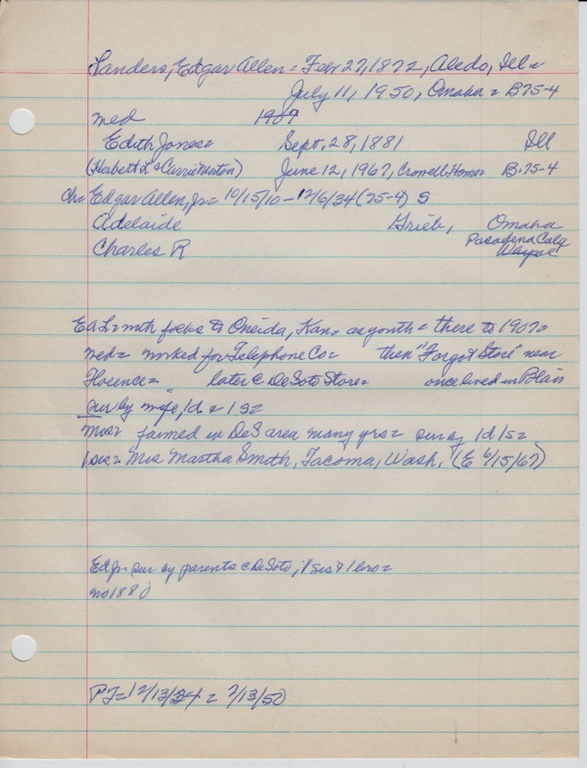 Sanders, Edgar Allen = Feb 27, 1872, Aledo, Ill =
July 11, 1950, Omaha = B75-4
med 1907
Edith Jones = Sept. 28, 1881 Ill
(Herbert L & Carrie Merton) June 12, 1967, Crowell Home = B-75-4
Ch = Edgar Allen, Jr = 10/15/10 - 12/6/34 (75-4) S
Adelaide Grieb, Omaha
Charles R Pasadena Calif
Wayne
Ed L = with folks to Oneida, Kan = as youth = there to 1907 =
med = worked for Telephone Co = then "Forgot Store" near
Florence = later @ DeSoto Store = once lived in Blair
sur by wife, 1d & 1s =
Mrs = farmed in DeS area many yrs = sur by 1d 1s =
1 sis = Mrs Martha Smith, Tacoma, Wash. (E 6/15/67)
Ed Jr = sur by parents @ DeSoto, 1 sis & 1 bro =
no 1880
PT = 12/13/34 = 7/13/50